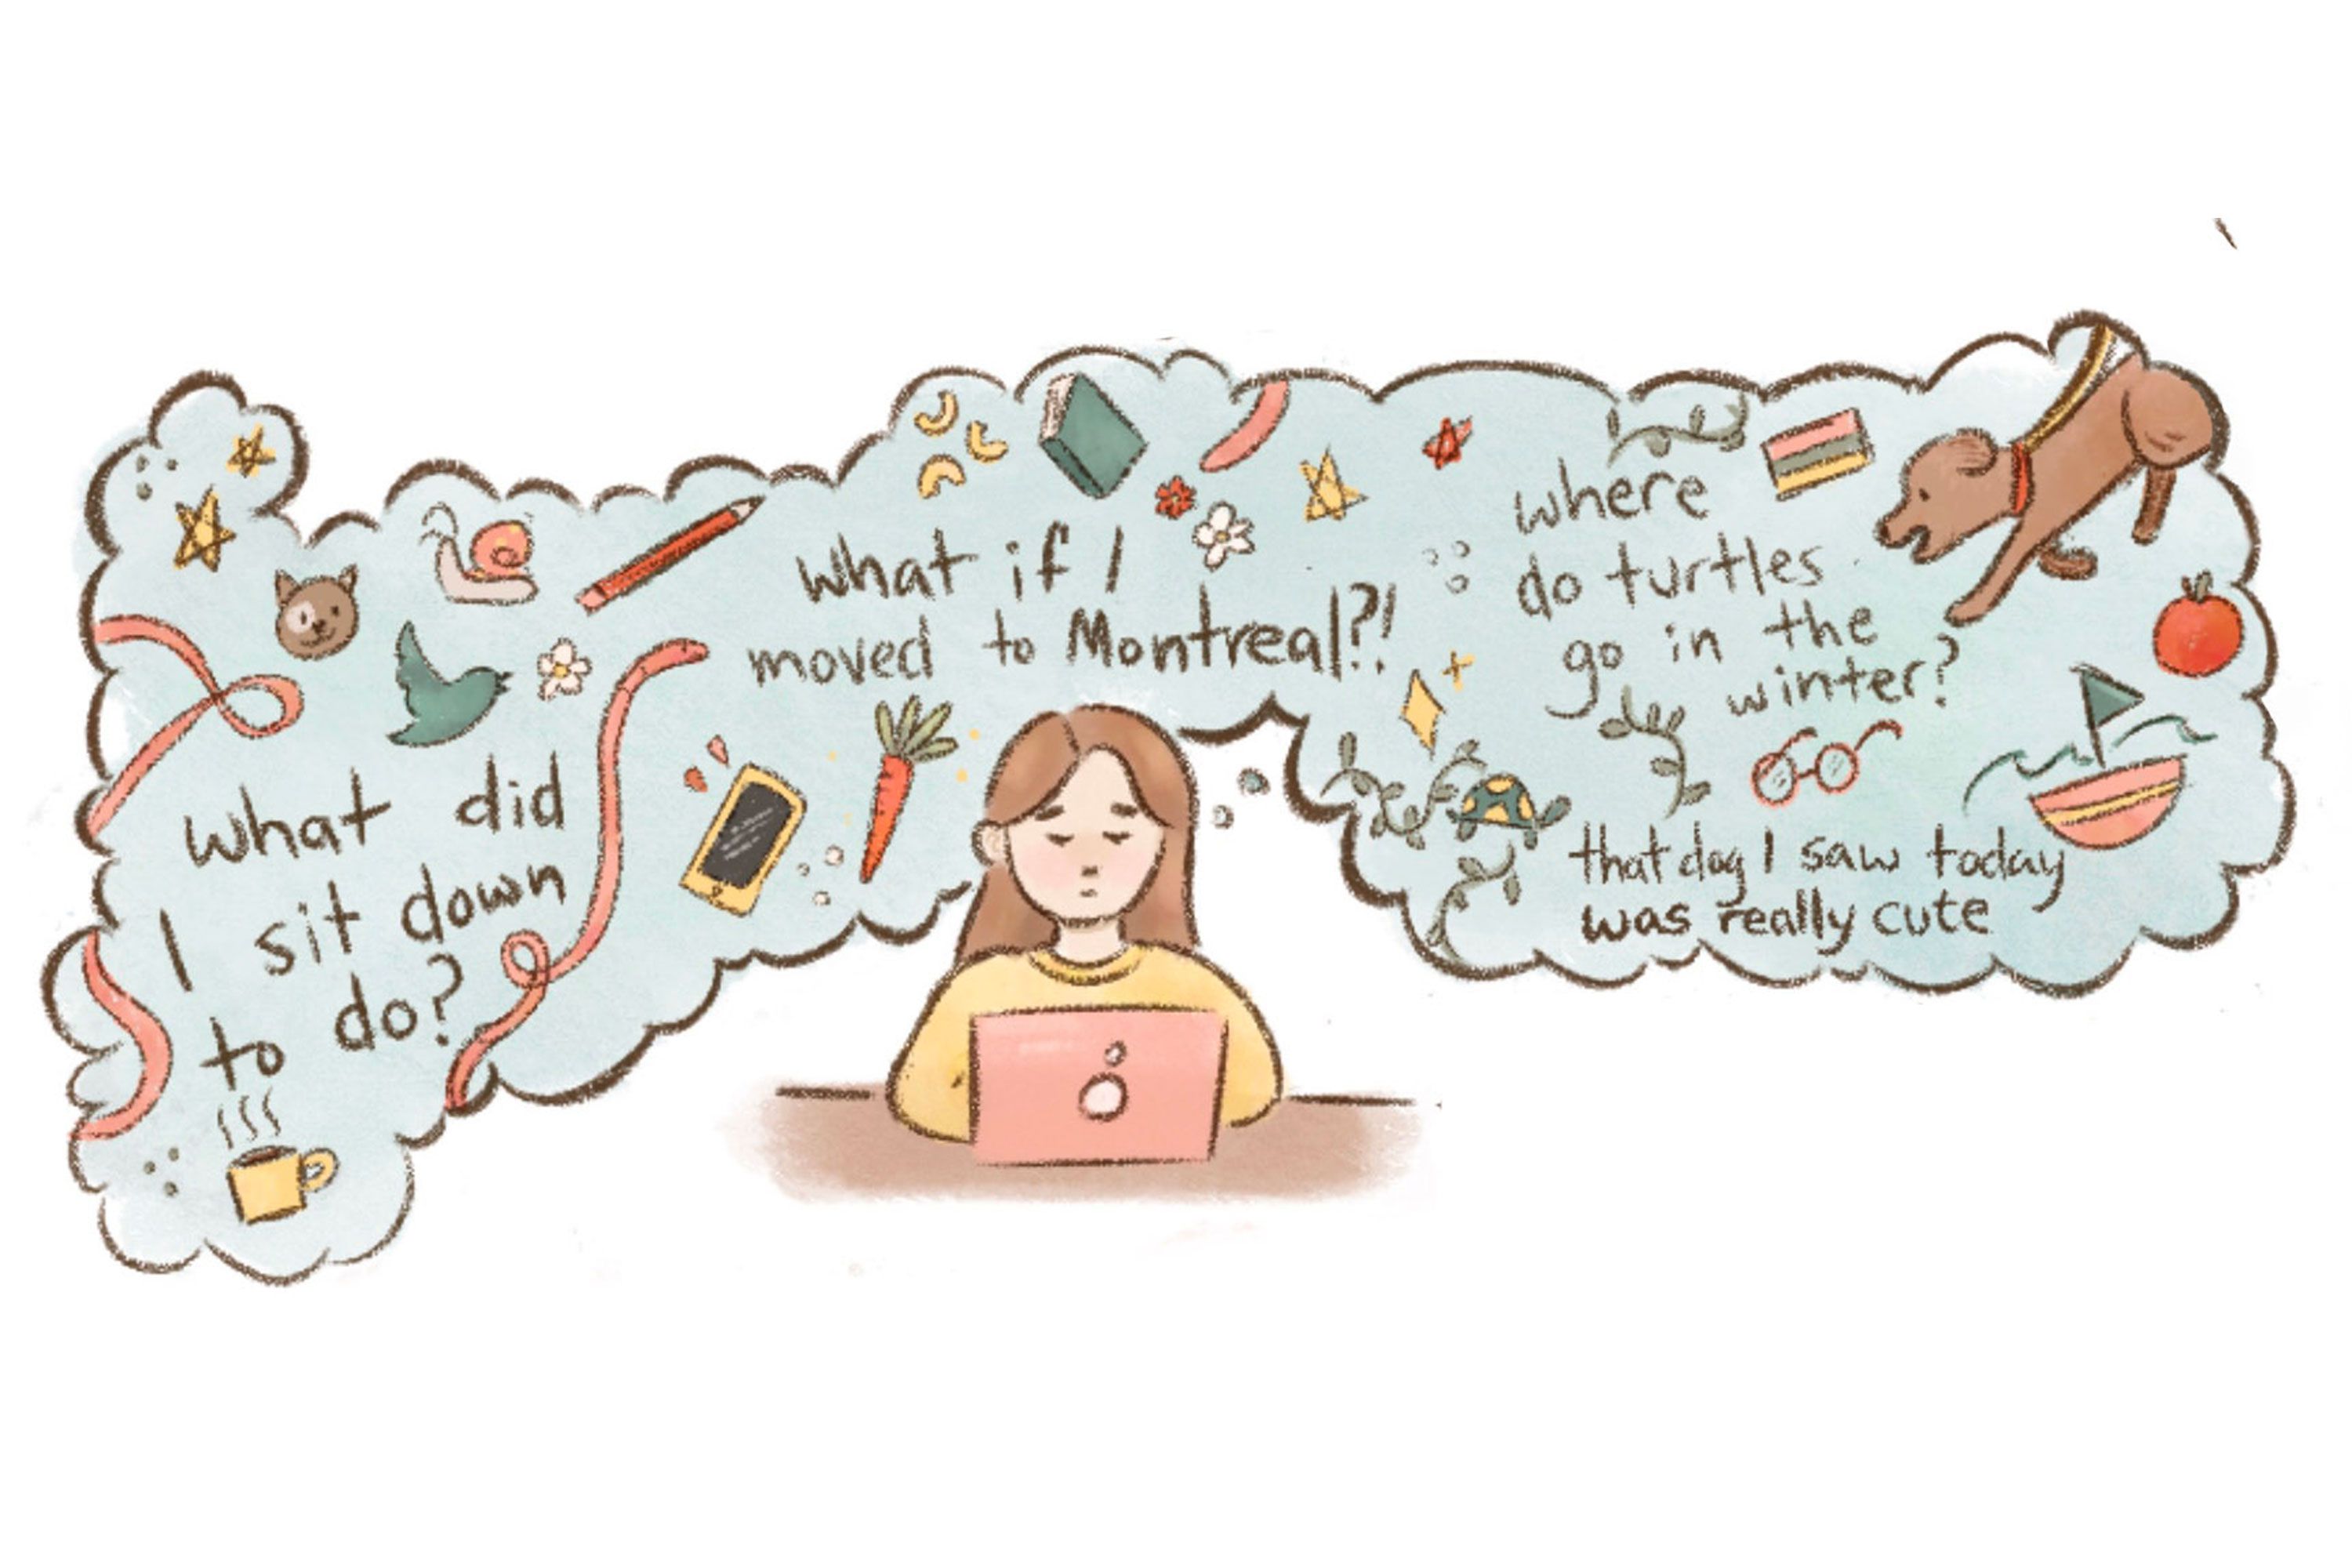 what did
I sit down
to do?
what if I
moved to Montreal?!
where
do turtles
go in the
winter?
that dog I saw today
was really cute